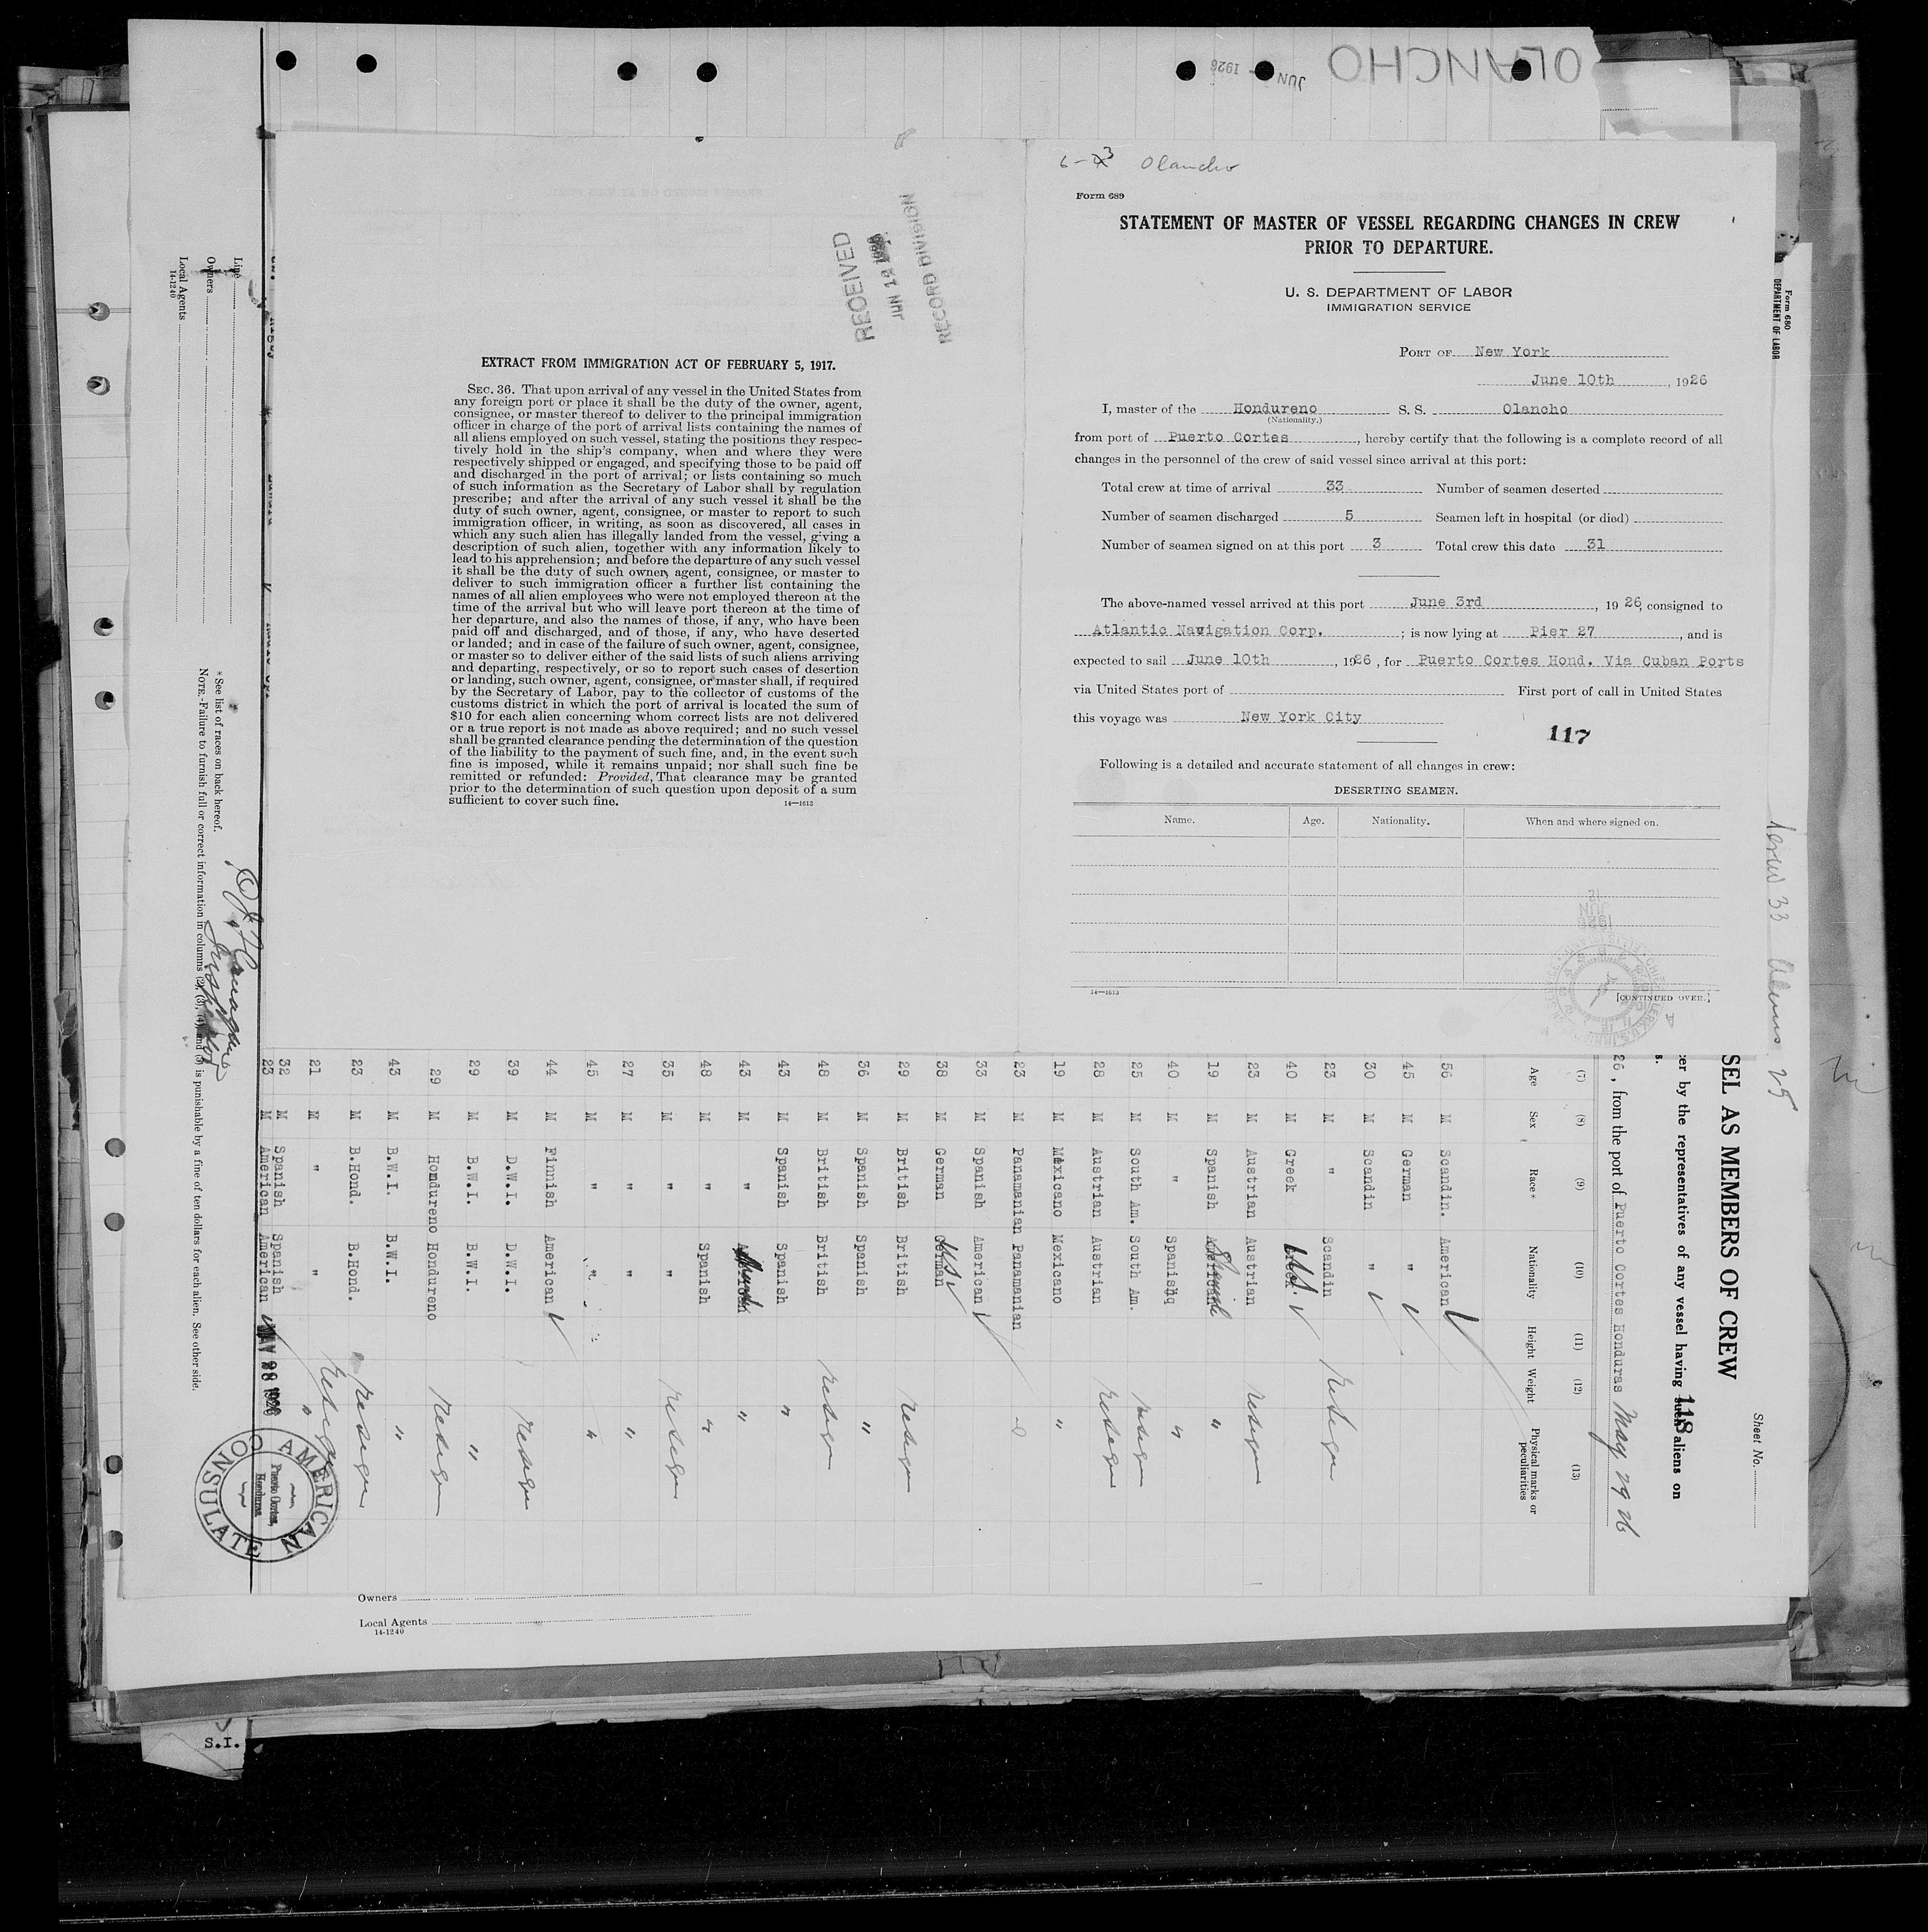 OLANCHO
JUN 1926
6-3 Olancho
Form 689
STATEMENT OF MASTER OF VESSEL REGARDING CHANGES IN CREW
PRIOR TO DEPARTURE.
U. S. DEPARTMENT OF LABOR
IMMIGRATION SERVICE
PORT OF New York
June 10th, 1926
I, master of the Hondureno S. S. Olancho
(Nationality.)
from port of Puerto Cortes, hereby certify that the following is a complete record of all
changes in the personnel of the crew of said vessel since arrival at this port:
Total crew at time of arrival 33 Number of seamen deserted
Number of seamen discharged 5 Seamen left in hospital (or died)
Number of seamen signed on at this port 3 Total crew this date 31
The above-named vessel arrived at this port June 3rd, 1926, consigned to
Atlantic Navigation Corp.; is now lying at Pier 27, and is
expected to sail June 10th, 1926, for Puerto Cortes Hond. Via Cuban Ports
via United States port of First port of call in United States
this voyage was New York City
117
Following is a detailed and accurate statement of all changes in crew:
DESERTING SEAMEN.
Name. Age. Nationality. When and where signed on.
14—1613
[CONTINUED OVER.]
RECEIVED
JUN 12
RECORD DIVISION
EXTRACT FROM IMMIGRATION ACT OF FEBRUARY 5, 1917.
SEC. 36. That upon arrival of any vessel in the United States from
any foreign port or place it shall be the duty of the owner, agent,
consignee, or master thereof to deliver to the principal immigration
officer in charge of the port of arrival lists containing the names of
all aliens employed on such vessel, stating the positions they respec-
tively hold in the ship's company, when and where they were
respectively shipped or engaged, and specifying those to be paid off
and discharged in the port of arrival; or lists containing so much
of such information as the Secretary of Labor shall by regulation
prescribe; and after the arrival of any such vessel it shall be the
duty of such owner, agent, consignee, or master to report to such
immigration officer, in writing, as soon as discovered, all cases in
which any such alien has illegally landed from the vessel, giving a
description of such alien, together with any information likely to
lead to his apprehension; and before the departure of any such vessel
it shall be the duty of such owner, agent, consignee, or master to
deliver to such immigration officer a further list containing the
names of all alien employees who were not employed thereon at the
time of the arrival but who will leave port thereon at the time of
her departure, and also the names of those, if any, who have been
paid off and discharged, and of those, if any, who have deserted
or landed; and in case of the failure of such owner, agent, consignee,
or master so to deliver either of the said lists of such aliens arriving
and departing, respectively, or so to report such cases of desertion
or landing, such owner, agent, consignee, or master shall, if required
by the Secretary of Labor, pay to the collector of customs of the
customs district in which the port of arrival is located the sum of
$10 for each alien concerning whom correct lists are not delivered
or a true report is not made as above required; and no such vessel
shall be granted clearance pending the determination of the question
of the liability to the payment of such fine, and, in the event such
fine is imposed, while it remains unpaid; nor shall such fine be
remitted or refunded: Provided, That clearance may be granted
prior to the determination of such question upon deposit of a sum
sufficient to cover such fine.
14—1613
Form 680
DEPARTMENT OF LABOR
Crew 33 Aliens 25
Sheet No.
SEL AS MEMBERS OF CREW
cer by the representatives of any vessel having such aliens on
118
26, from the port of Puerto Cortes Honduras May 29 26
(7) (8) (9) (10) (11) (12) (13)
Age Sex Race* Nationality Height Weight Physical marks or peculiarities
56 M Scandin. American
45 M German "
30 M Scandin "
23 M " Scandin
40 M Greek U.S.
23 M Austrian Austrian
19 M Spanish Spanish
40 M " Spanish
25 M South Am. South Am.
28 M Austrian Austrian
19 M Mexicano Mexicano "
23 M Panamanian Panamanian
33 M Spanish American
38 M German U.S.
29 M British British
36 M Spanish Spanish "
48 M British British
43 M Spanish Spanish "
43 M " "
48 M " Spanish "
35 M " "
27 M " " "
45 M " " "
44 M Finnish American
39 M D.W.I. D.W.I.
29 M B.W.I. B.W.I. "
29 M Hondureno Hondureno
43 M B.W.I. B.W.I. "
23 M B.Hond. B.Hond.
21 M " "
32 M Spanish Spanish "
23 M American American
MAY 28 1926
AMERICAN CONSULATE
Puerto Cortes, Honduras
* See list of races on back hereof.
NOTE.-Failure to furnish full or correct information in columns (2), (3), (4), and (5) is punishable by a fine of ten dollars for each alien. See other side.
Line
Owners
Local Agents
14-1240
Owners
Local Agents
14-1240
S.I.